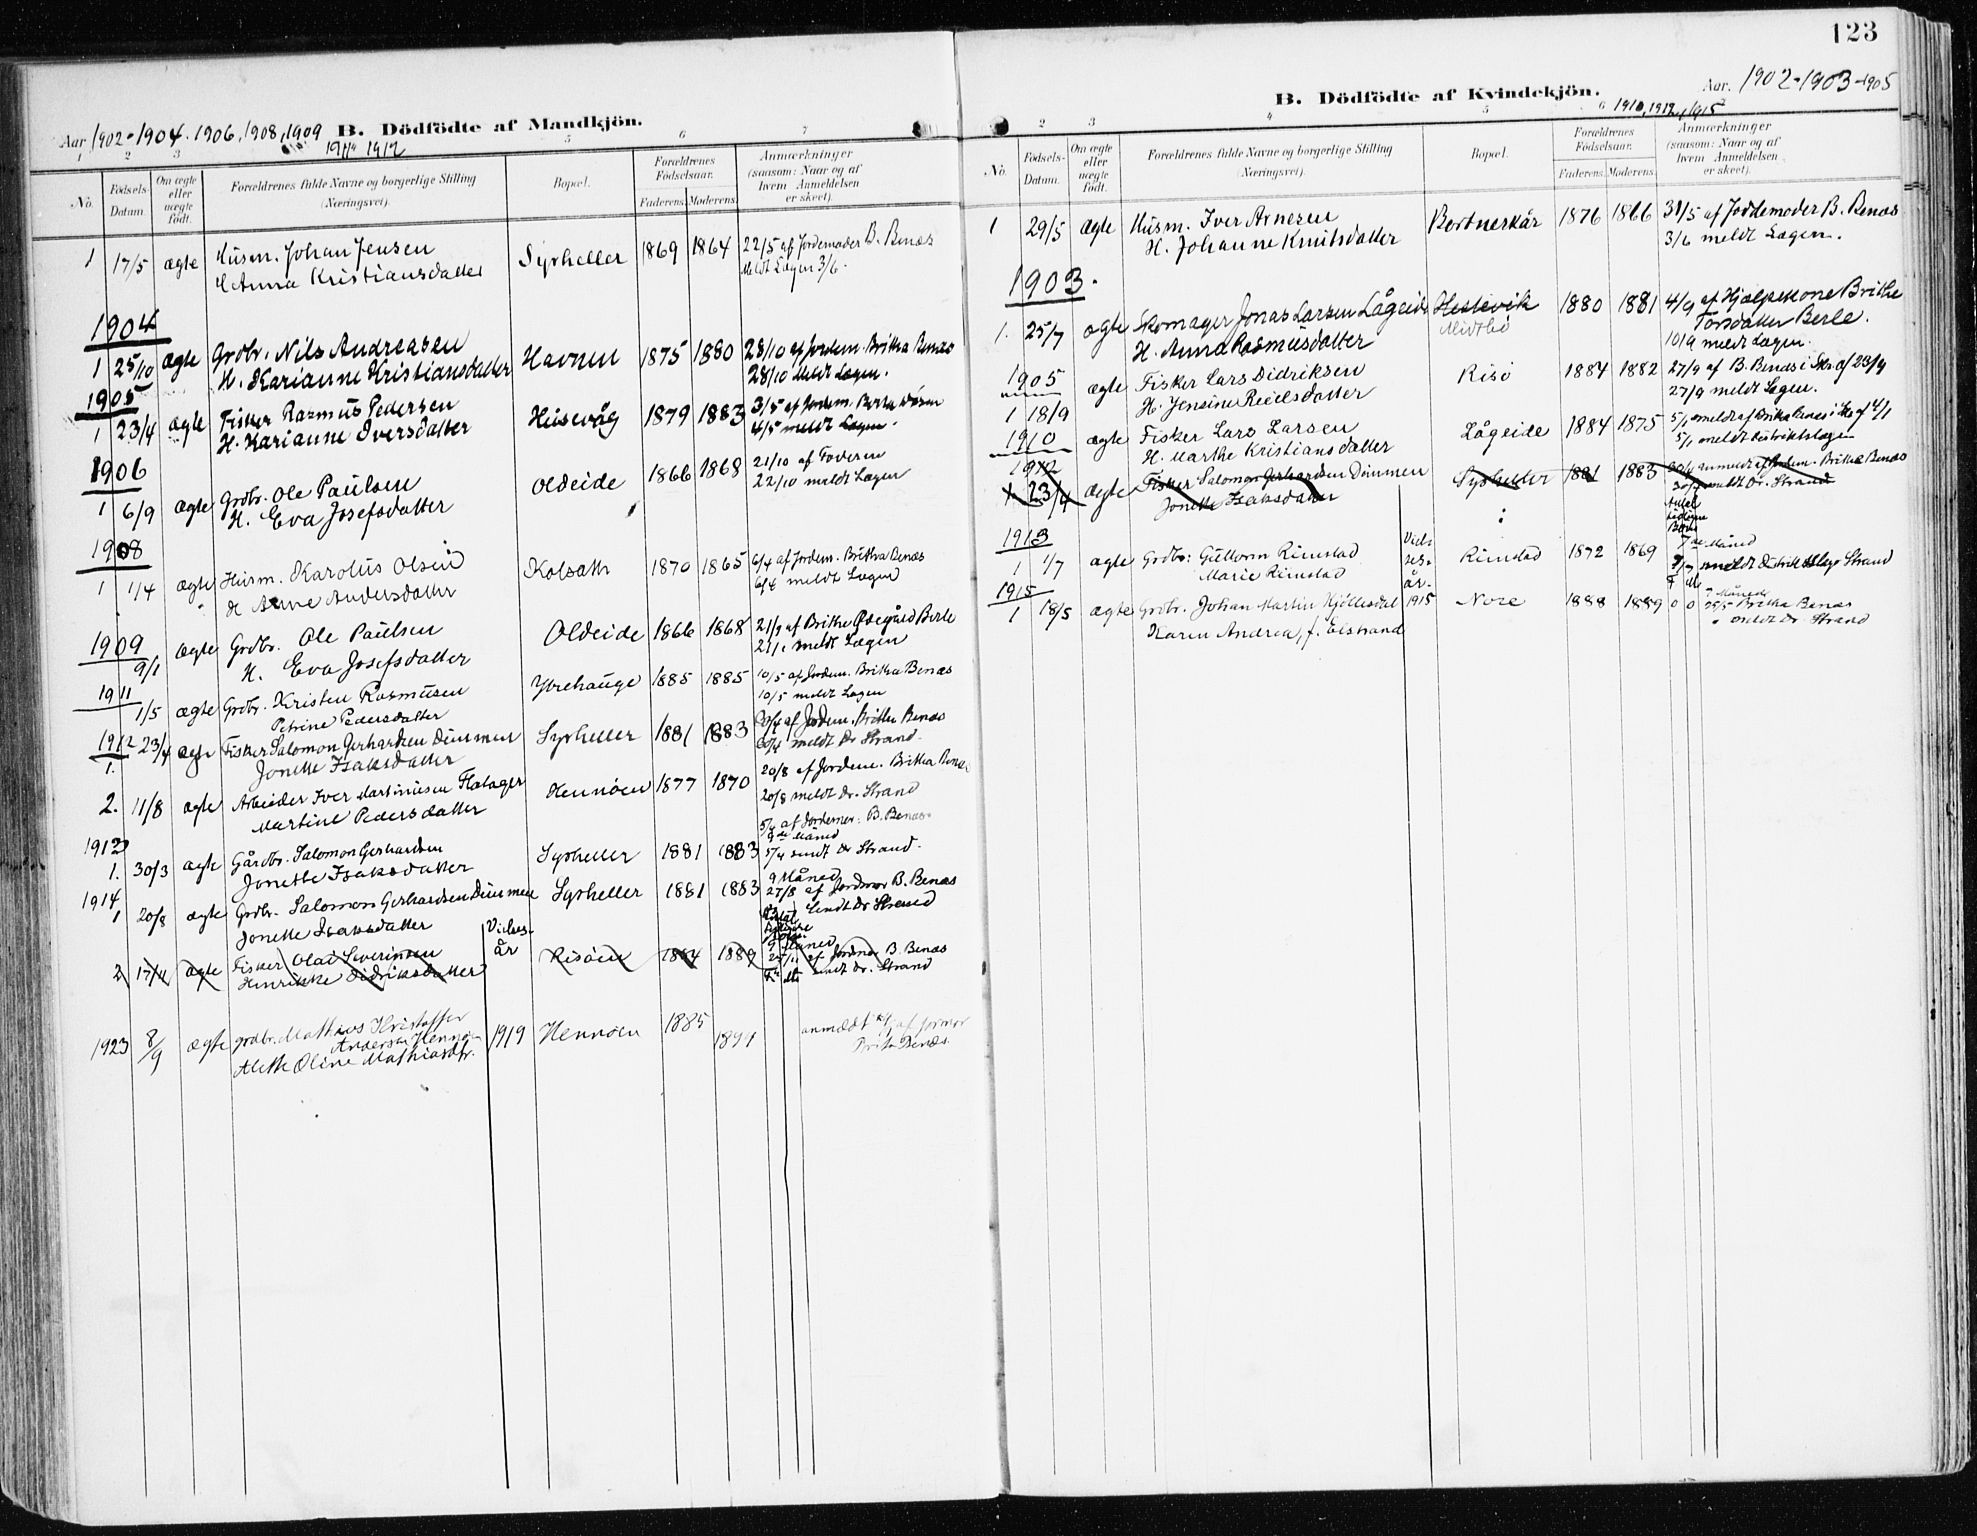 Aar 1902-1904. 1906, 1908, 1909 B. Dödfödte af Mandkjön.
1911 1912
1 2 3 5 6 7
No.
Födsels-Datum.
Om ægte eller uægte födt.
Forældrenes fulde Navne og borgerlige Stilling (Næringsvei).
Bopæl.
Forældrenes Födselsaar.
Faderens. Moderens.
Anmærkninger (saasom: Naar og af hvem Anmeldelsen er skeet).
1 17/5 ægte Husm. Johan Jensen Syrheller 1869 1864 22/5 af Jordemoder B. Benæs
Anna Kristiansdatter Meldt Lægen 3/6.
1904
1 25/10 ægte Grdbr. Nils Andreasen Havnen 1875 1880 28/10 af Jordem. Brithe Benæs
H. Karianne Kristiansdatter 28/10 meldt Lægen.
1905
1 23/4 ægte Fisker Rasmus Pedersen Husevåg 1879 1883 3/5 af Jordem.
H. Karianne Iversdatter 4/5 meldt Lægen.
1906
1 6/9 ægte Grdbr. Ole Paulsen Oldeide 1866 1868 21/10 af Faderen
H. Eva Josefsdatter 22/10 meldt Lægen
1908
1 1/4 ægte Husm. Karolus Olsen Kolsæth 1870 1865 6/4 af Jordem. Brithe Benæs
H. Anne Andersdatter 6/4 meldt Lægen
1909
9/1 ægte Grdbr. Ole Paulsen Oldeide 1866 1868 21/1 af Brithe Berle
H. Eva Josefsdatter 21/1 meldt Lægen
1911
1/5 ægte Grdbr. Kristen Rasmusen Ytrehauge 1885 1885 10/5 af Jordem. Brithe Benæs
Petrine Pedersdatter 10/5 meldt Lægen
1912 23/4 ægte Fisker Salomon Gerhardsen Dimmen Syrheller 1881 1883 30/4 af Jordem. Brithe Benæs
1. Jonette Isaksdatter 30/4 meldt Dr Strand.
2. 11/8 ægte Arbeider Iver Martinusen Flatager Hennöen 1877 1870 20/8 af Jordem. Brithe Benæs
Martine Pedersdatter 20/8 meldt Dr. Strand
1913 5/4 af Jordemor. B. Benæs.
1. 30/3 ægte Gårdbr. Salomon Gerhardsen Syrheller 1881 1883 5/4 sendt Dr Strand.
Jonette Isaksdatter
1914 9 Måned
1 20/8 ægte Grdbr. Salomon Gerhardsen Dimmen Syrheller 1881 1883 27/8 af Jordmor B. Benæs
Jonette Isaksdatter Sendt Dr Strand
Vielses-år
2 17/4 ægte Fisker Olai Severinsen Risöen 1884 1889 af Jordmor B. Benæs
Henrikke Didriksdatter sendt Dr. Strand
1923 8/9 ægte grdbr. Mathias Kristoffer 1919 Hennöen 1885 1894 anmeldt af jormor
Andersen Hennöen
Alette Oline Mathiasdtr. Brite Benæs
123
B. Dödfödte af Kvindekjön. Aar. 1902-1903-1905
1910, 1912, 1915
2 3 4 5 6 7
No.
Födsels-Datum.
Om ægte eller uægte födt.
Forældrenes fulde Navne og borgerlige Stilling (Næringsvei).
Bopæl.
Forældrenes Födselsaar.
Faderens. Moderens.
Anmærkninger (saasom: Naar og af hvem Anmeldelsen er skeet).
1 29/5 ægte Husm. Iver Arnesen Bortnerkår 1876 1866 31/5 af Jordemoder B. Benæs
H. Johanne Knutsdatter 3/6 meldt Lægen.
1903.
1. 25/7 ægte Skomager Jonas Larsen Lågeide Hestevik 1880 1881 4/9 af Hjælpekone Brithe
H. Anna Rasmusdatter Midtbö Torsdatter Berle.
10/9 meldt Lægen.
1905 ægte Fisker Lars Didriksen Risö 1884 1882 27/9 af B. Benæs i Skr. af 23/9
1 18/9 H. Jensine Reiersdatter 27/9 meldt Lægen.
1910 ægte Fisker Lars Larsen Lågeide 1884 1875 5/1 meldt af Brithe Benæs i Skr af 4/1
H. Marthe Kristiansdatter 5/1 meldt Distriktslægen
1912
1. 23/4 ægte Fisker Salomon Gerhardsen Dimmen Syrheller 1881 1883 30/4 anmeldt af Jordem. Brithe Benæs
Jonette Isaksdatter 30/4 meldt Dr. Strand
Antal
tidligere
Børn
1913 7de Måned
1 1/7 ægte Grdbr. Guttorm Rimstad Vielses-år. Rimstad 1872 1869 meldt Distriktslæge Strand
Marie Rimstad
1915 7 Måneder
1 18/5 ægte Grdbr. Johan Martin Hjöllesdal 1915 Nore 1888 1889 0 0 25/5 Brithe Benæs
Karen Andrea, f. Elstrand " meldt Dr. Strand